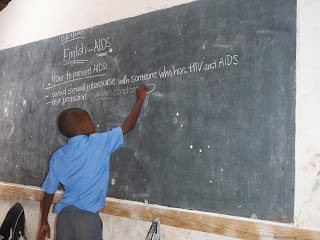 English - AIDS
How to prevent AIDS
- avoid sexual intercourse with someone who has HIV and AIDS
- use protection